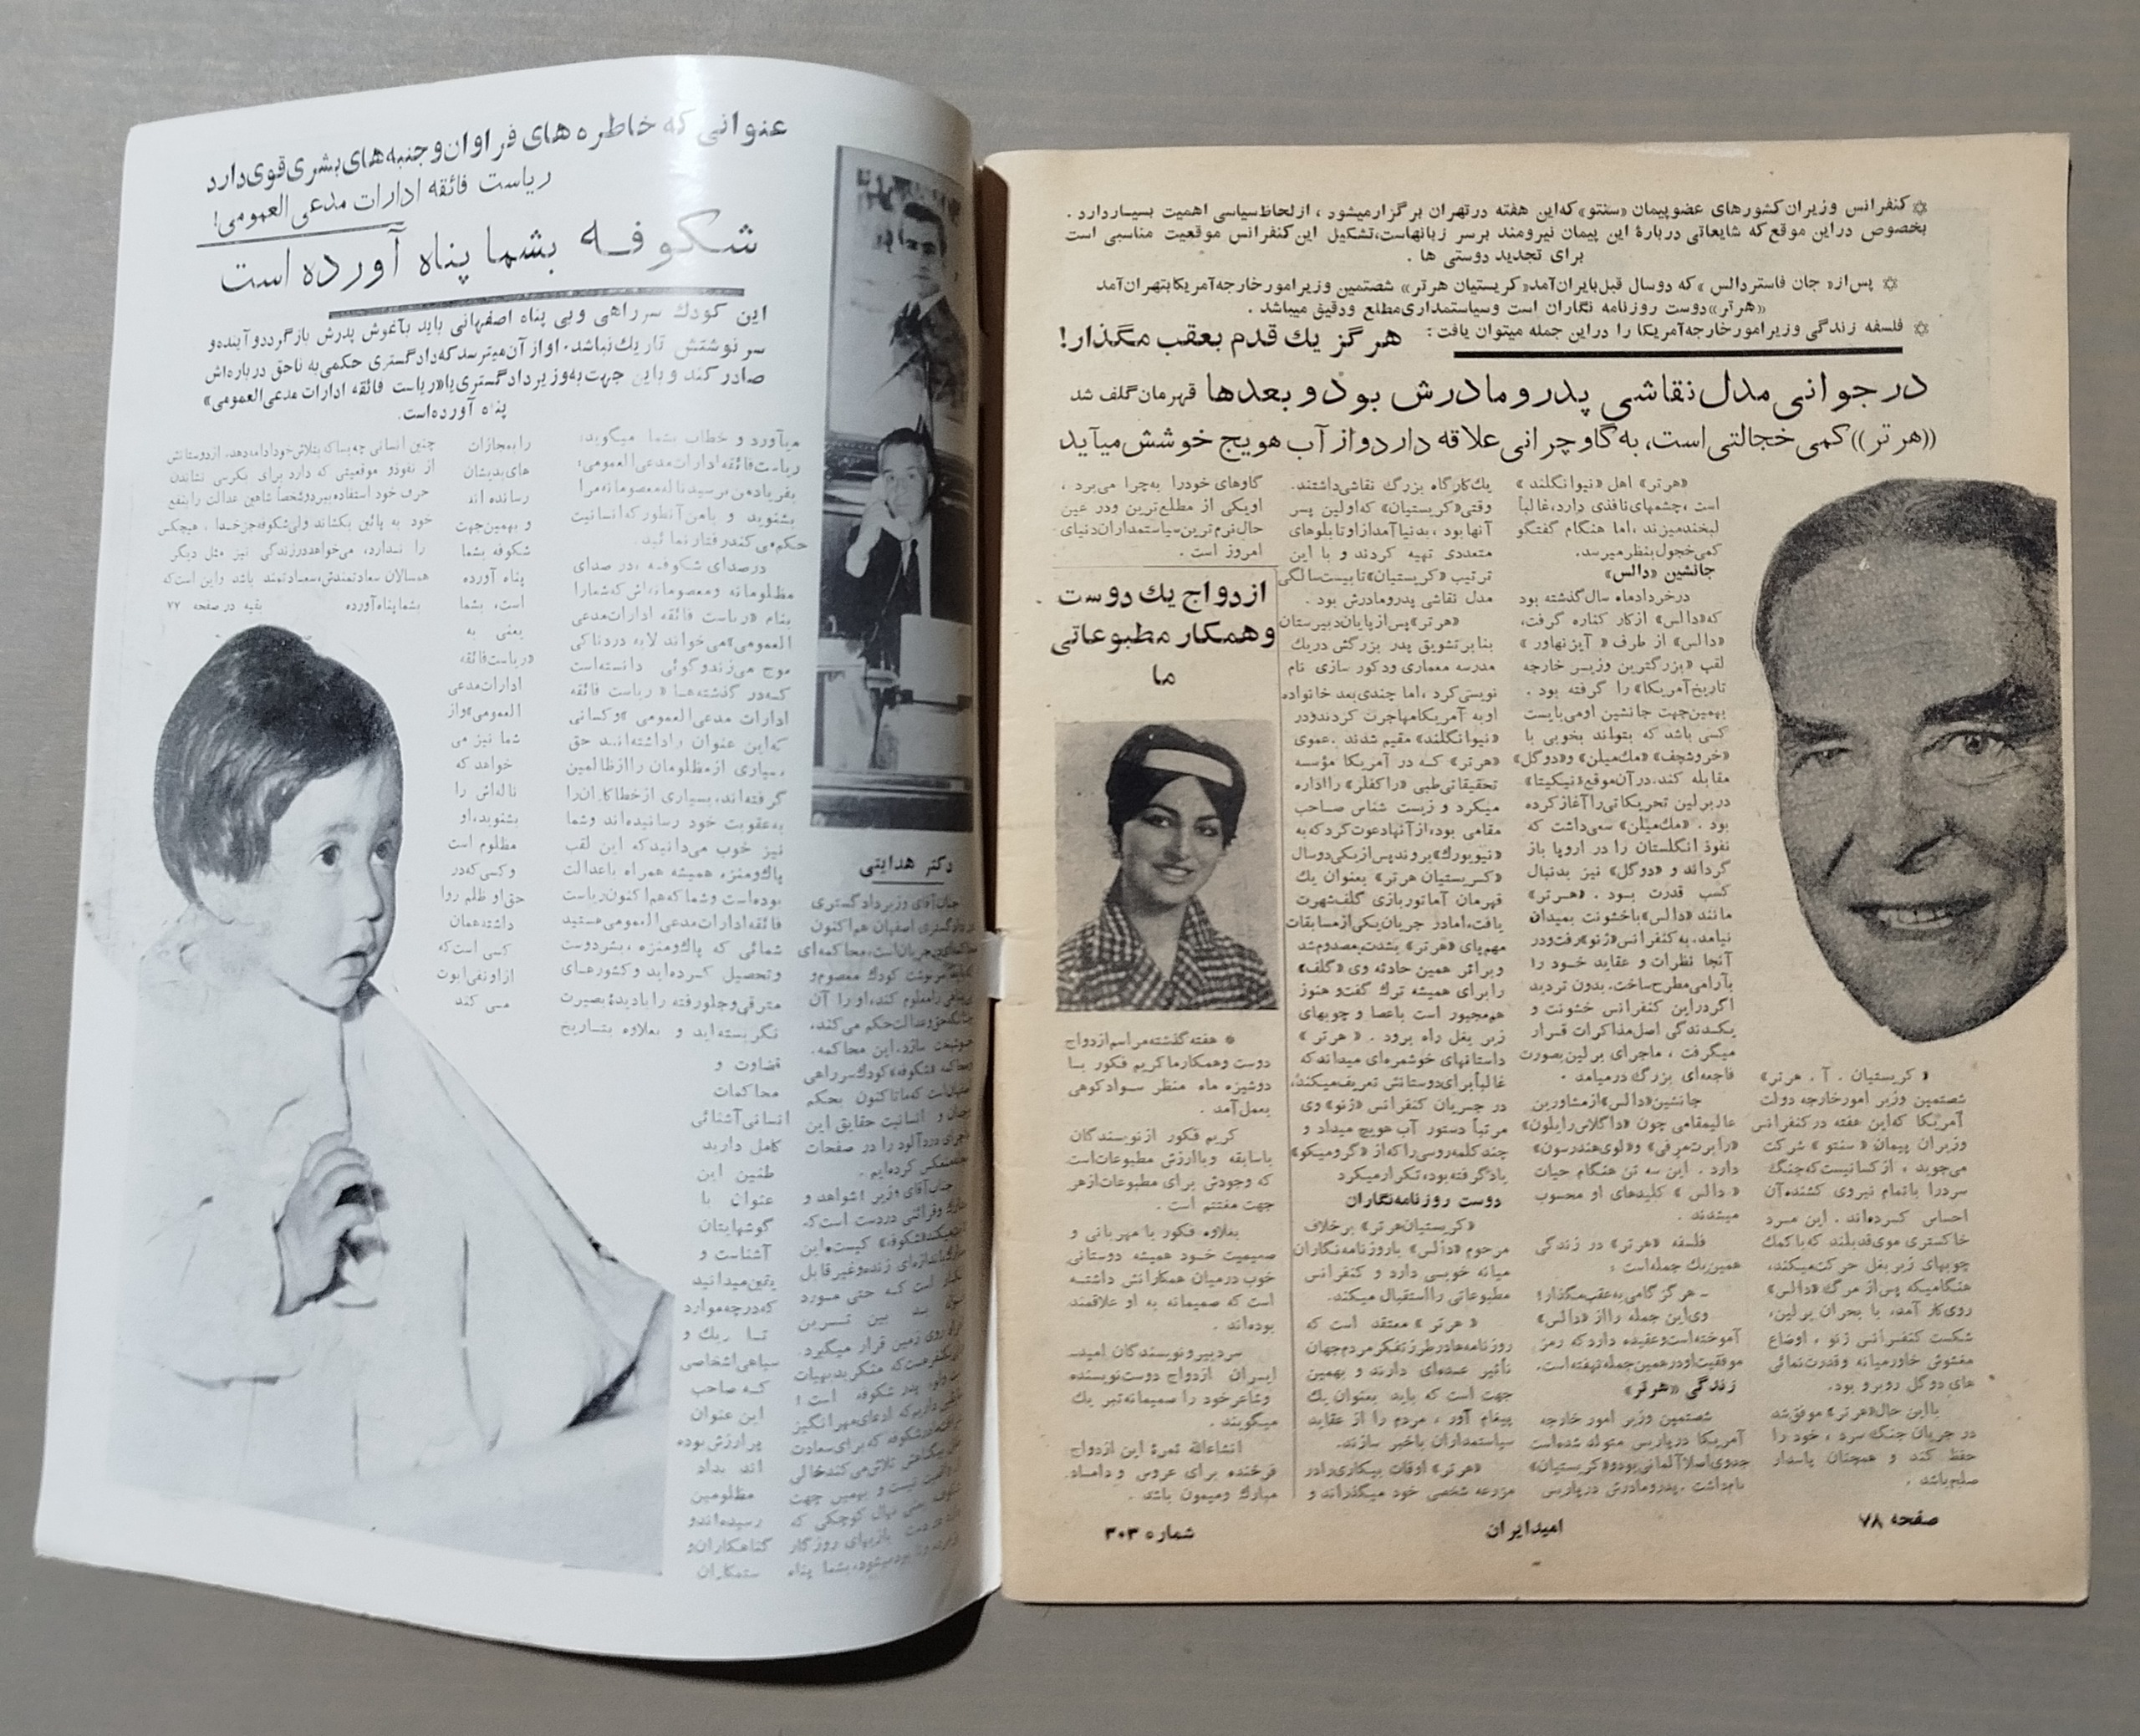 ✡ کنفرانس وزیران کشورهای عضو پیمان «سنتو» که این هفته در تهران برگزار میشود ، از لحاظ سیاسی اهمیت بسیار دارد .
بخصوص در این موقع که شایعاتی دربارهٔ این پیمان نیرومند بر سر زبانهاست، تشکیل این کنفرانس موقعیت مناسبی است
برای تجدید دوستی ها .
✡ پس از «جان فاستر دالس» که دو سال قبل بایران آمد «کریستیان هرتر» شصتمین وزیر امور خارجه آمریکا بتهران آمد
«هرتر» دوست روزنامه نگاران است و سیاستمداری مطلع و دقیق میباشد .
✡ فلسفه زندگی وزیر امور خارجه آمریکا را در این جمله میتوان یافت : هرگز یك قدم بعقب مگذار!
در جوانی مدل نقاشی پدر و مادرش بود و بعدها قهرمان گلف شد
((هرتر)) کمی خجالتی است، به گاو چرانی علاقه دارد و از آب هویج خوشش میآید
« کریستیان . آ . هرتر»
شصتمین وزیر امور خارجه دولت
آمریکا که این هفته در کنفرانس
وزیران پیمان « سنتو » شرکت
می‌جوید ، از کسانیست که جنگ
سرد را با تمام نیروی کشنده آن
احساس کرده‌اند . این مرد
خاکستری موی قد بلند که با کمك
چوبهای زیر بغل حرکت میکند،
هنگامیکه پس از مرگ «دالس»
روی کار آمد، با بحران برلین،
شکست کنفرانس ژنو ، اوضاع
مغشوش خاورمیانه و قدرت نمائی
های دوگل روبرو بود.
با این حال «هرتر» موفق شد
در جریان جنگ سرد ، خود را
حفظ کند و همچنان پاسدار
صلح باشد .
«هرتر» اهل «نیوانگلند »
است ، چشمهای نافذی دارد، غالباً
لبخند میزند ، اما هنگام گفتگو
کمی خجول بنظر میرسد.
جانشین «دالس»
در خرداد ماه سال گذشته بود
که «دالس» از کار کناره گرفت،
«دالس» از طرف « آیزنهاور »
لقب «بزرگترین وزیر خارجه
تاریخ آمریکا» را گرفته بود .
بهمین جهت جانشین او می‌بایست
کسی باشد که بتواند بخوبی با
«خروشچف» «مك میلن» و «دوگل»
مقابله کند. در آن موقع «نیکیتا»
در برلین تحریکاتی را آغاز کرده
بود . «مك میلن» سعی داشت که
نفوذ انگلستان را در اروپا باز
گرداند و «دوگل» نیز بدنبال
کسب قدرت بود . «هرتر»
مانند «دالس» با خشونت بمیدان
نیامد. به کنفرانس «ژنو» رفت و در
آنجا نظرات و عقاید خود را
بآرامی مطرح ساخت. بدون تردید
اگر در این کنفرانس خشونت و
یکدندگی اصل مذاکرات قرار
میگرفت ، ماجرای برلین بصورت
فاجعه‌ای بزرگ درمیامد .
جانشین «دالس» از مشاورین
عالیمقامی چون «داگلاس رایلون»
«رابرت مرفی» و «لوی هندرسون»
دارد . این سه تن هنگام حیات
« دالس » کلیدهای او محسوب
میشدند .
فلسفه «هرتر» در زندگی
همین یك جمله است :
ـ هرگز گامی به عقب مگذار!
وی این جمله را از «دالس»
آموخته است و عقیده دارد که رمز
موفقیت او در همین جمله نهفته است.
زندگی «هرتر»
شصتمین وزیر امور خارجه
آمریکا در پاریس متولد شده است
جدوی اصلا آلمانی بود و «کریستیان»
نام داشت . پدر و مادرش در پاریس
یك کارگاه بزرگ نقاشی داشتند.
وقتی «کریستیان» که اولین پسر
آنها بود ، بدنیا آمد از او تابلوهای
متعددی تهیه کردند و با این
ترتیب «کریستیان» تا بیست سالگی
مدل نقاشی پدر و مادرش بود .
«هرتر» پس از پایان دبیرستان
بنا بر تشویق پدر بزرگش در یك
مدرسه معماری و دکور سازی نام
نویسی کرد ، اما چندی بعد خانواده
او به آمریکا مهاجرت کردند و در
«نیوانگلند» مقیم شدند . عموی
«هرتر» که در آمریکا مؤسسه
تحقیقاتی طبی «راکفلر» را اداره
میکرد و زیست شناس صاحب
مقامی بود، از آنها دعوت کرد که به
«نیویورك» بروند پس از یکی دو سال
«کریستیان هرتر» بعنوان یك
قهرمان آماتور بازی گلف شهرت
یافت، اما در جریان یکی از مسابقات
مهم پای «هرتر» بشدت مصدوم شد
و بر اثر همین حادثه وی «گلف»
را برای همیشه ترك گفت و هنوز
هم مجبور است با عصا و چوبهای
زیر بغل راه برود . « هرتر »
داستانهای خوشمزه‌ای میداند که
غالباً برای دوستانش تعریف میکند،
در جریان کنفرانس «ژنو» وی
مرتباً دستور آب هویج میداد و
چند کلمه روسی را که از «گرومیکو»
یاد گرفته بود، تکرار میکرد
دوست روزنامه نگاران
«کریستیان هرتر» برخلاف
مرحوم «دالس» با روزنامه نگاران
میانه خوبی دارد و کنفرانس
مطبوعاتی را استقبال میکند.
« هرتر » معتقد است که
روزنامه‌ها در طرز تفکر مردم جهان
تأثیر عمده‌ای دارند و بهمین
جهت است که باید بعنوان یك
پیغام آور ، مردم را از عقاید
سیاستمداران باخبر سازند.
«هرتر» اوقات بیکاری را در
مزرعه شخصی خود میگذراند و
گاوهای خود را به چرا می‌برد ،
او یکی از مطلع ترین و در عین
حال نرم ترین سیاستمداران دنیای
امروز است .
ازدواج یك دوست
و همکار مطبوعاتی
ما
* هفته گذشته مراسم ازدواج
دوست و همکار ما کریم فکور با
دوشیزه ماه منظر سواد کوهی
بعمل آمد .
کریم فکور از نویسندگان
باسابقه و با ارزش مطبوعات است
که وجودش برای مطبوعات از هر
جهت مغتنم است .
بعلاوه فکور با مهربانی و
صمیمیت خود همیشه دوستانی
خوب در میان همکارانش داشته
است که صمیمانه به او علاقمند
بوده‌اند .
سردبیر و نویسندگان امید
ایران ازدواج دوست نویسنده
و شاعر خود را صمیمانه تبریك
میگویند .
انشاءالله ثمرهٔ این ازدواج
فرخنده برای عروس و داماد
مبارك و میمون باشد .
صفحه ۷۸
امید ایران
شماره ۳۰۳
عنوانی که خاطره های فراوان و جنبه های بشری قوی دارد
ریاست فائقه ادارات مدعی العمومی!
شکوفه بشما پناه آورده است
این کودك سرراهی و بی پناه اصفهانی باید بآغوش پدرش بازگردد و آینده و
سرنوشتش تاریك نباشد. او از آن میترسد که دادگستری حکمی به ناحق درباره‌اش
صادر کند و باین جهت به وزیر دادگستری یا «ریاست فائقه ادارات مدعی العمومی»
پناه آورده است.
دکتر هدایتی
جناب آقای وزیر دادگستری
دادگستری اصفهان هم اکنون
قضاوت و
محاکمات
انسانی آشنائی
کامل دارید
طنین این
عنوان با
گوشهایتان
آشناست و
یقین میدانید
که در چه موارد
تاریك و
سیاهی اشخاصی
که صاحب
این عنوان
پرارزش بوده
اند بداد
مظلومین
رسیده‌اند و
گناهکاران و
ستمکاران
میآورد و خطاب بشما میگوید:
ریاست فائقه ادارات مدعی العمومی:
بفریاد من برسید ناله معصومانه مرا
بشنوید و با من آنطور که انسانیت
حکم می کند رفتار نمائید.
در صدای شکوفه ، در صدای
مظلومانه و معصومانه‌اش که شما را
بنام «ریاست فائقه ادارات مدعی
العمومی» می‌خواند لابه دردناکی
موج می‌زند و گوئی دانسته است
که در گذشته‌ها « ریاست فائقه
ادارات مدعی العمومی » و کسانی
که این عنوان را داشته‌اند حق
بسیاری از مظلومان را از ظالمین
گرفته‌اند، بسیاری از خطاکاران را
به عقوبت خود رسانیده‌اند و شما
نیز خوب می‌دانید که این لقب
پاك و منزه همیشه همراه با عدالت
بوده است و شما که هم اکنون ریاست
فائقه ادارات مدعی العمومی هستید
شمائی که پاك و منزه ، بشر دوست
و تحصیل کرده‌اید و کشورهای
مترقی و جلو رفته را با دیدهٔ بصیرت
نگریسته‌اید و بعلاوه بتاریخ
را بمجازات
های بدیشان
رسانده اند
و بهمین جهت
شکوفه بشما
پناه آورده
است، بشما
یعنی به
«ریاست فائقه
ادارات مدعی
العمومی» و از
شما نیز می
خواهد که
ناله‌اش را
بشنوید، او
مظلوم است
و کسی که در
حق او ظلم روا
داشته همان
کسی است که
از او نفی ابوت
می کند
چنین انسانی چه بسا که بتلاش خود ادامه دهد، از دوستانش
از نفوذ و موقعیتی که دارد برای بکرسی نشاندن
حرف خود استفاده ببرد و شخصاً شاهین عدالت را بنفع
خود به پائین بکشاند ولی شکوفه جز خدا ، هیچکس
را ندارد، می‌خواهد در زندگی نیز مثل دیگر
همسالان سعادتمندش، سعادتمند باشد و این است که
بشما پناه آورده
بقیه در صفحه ۷۷